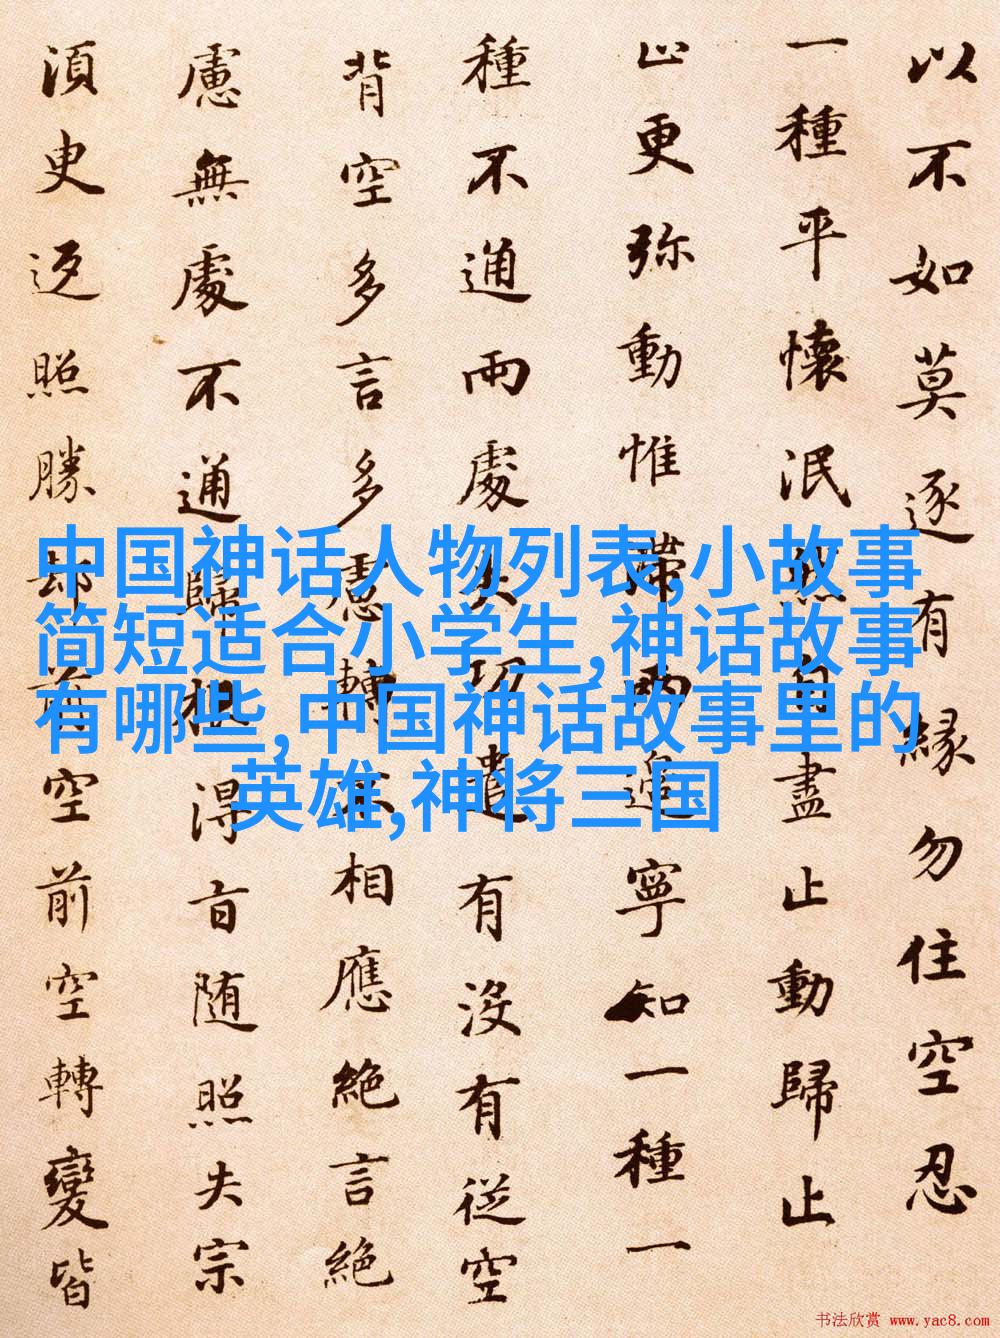 以不如莫逐有緣勿住空忍
一種平懷泯然自盡止動歸止
止更弥動惟滯兩邊寧知一種一
種不通兩處失功遣有沒有從空
背空多言多慮轉不相應絕言絕
慮無處不通歸根得旨随照失宗
須臾返照勝却前空前空轉變皆
中国神话人物列表,小故事
简短适合小学生,神话故事
有哪些,中国神话故事里的
英雄,神将三国
书法欣赏 www.yac8.com